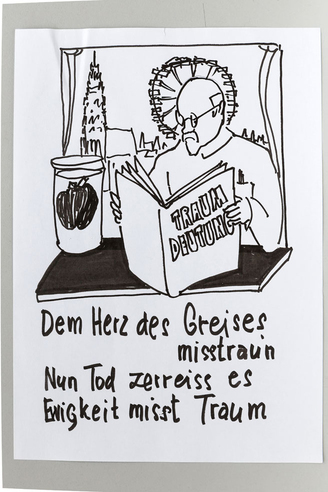 TRAUM
DEUTUNG
Dem Herz des Greises
misstraun
Nun Tod zerreiss es
Ewigkeit misst Traum